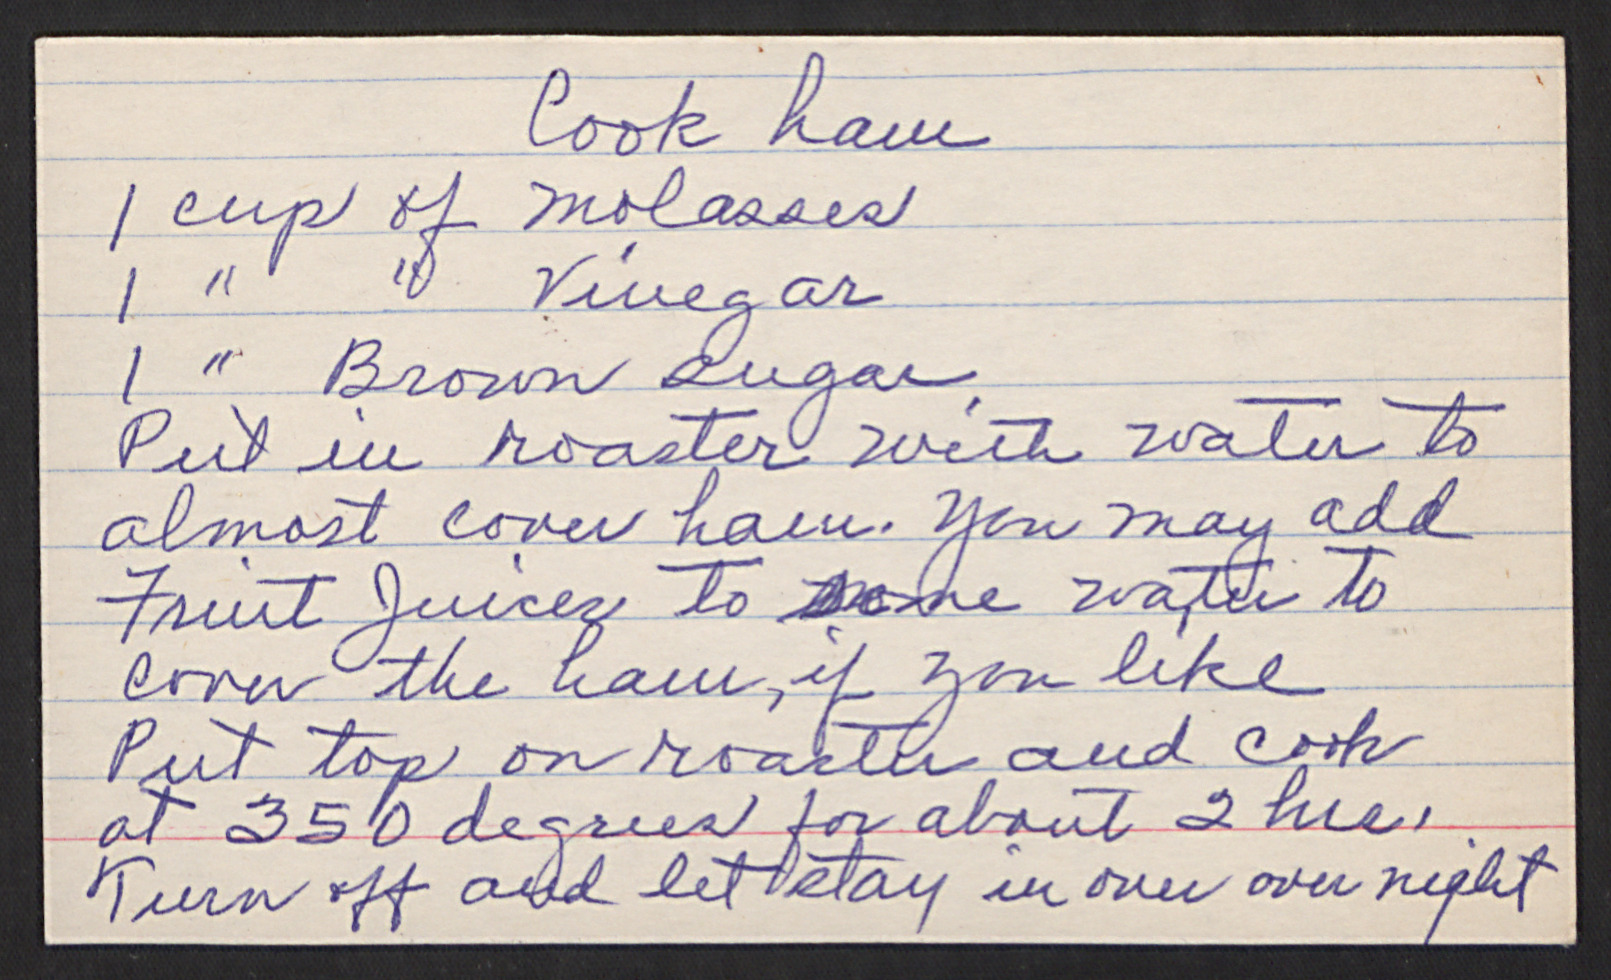 Cook ham
1 cup of molasses
1 " " Vinegar
1 " Brown sugar
Put in roaster with water to
almost cover ham. You may add
Fruit Juices to some water to
cover the ham, if you like
Put top on roaster and cook
at 350 degrees for about 2 hrs.
Turn off and let stay in oven over night